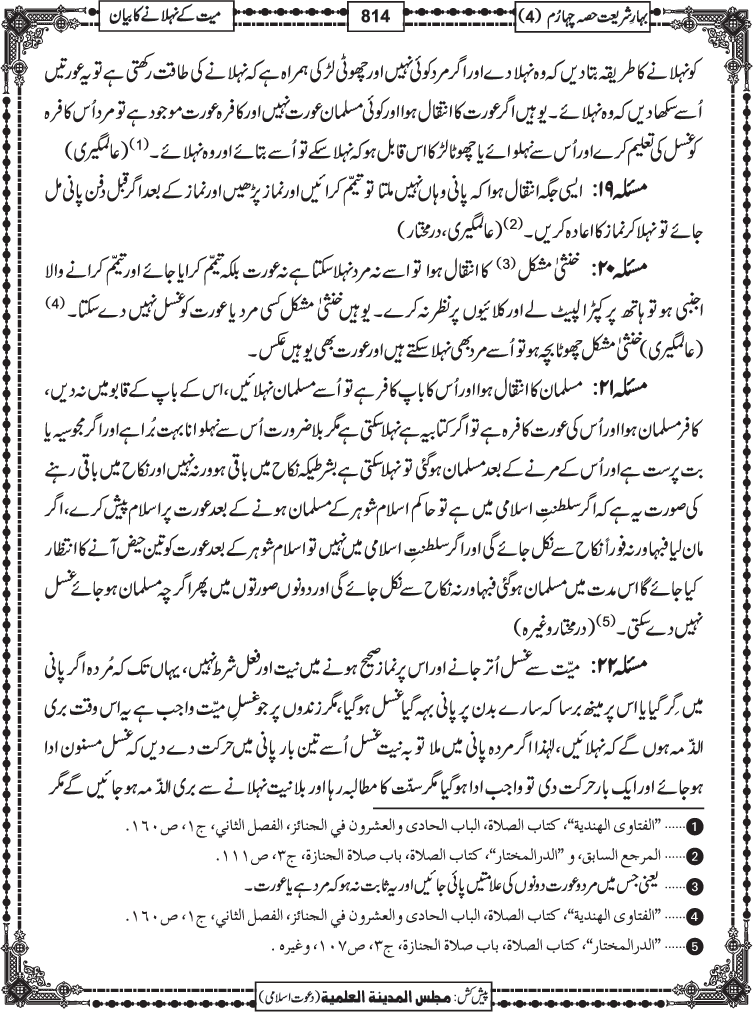 بہارِ شریعت حصہ چہارم (4)
814
میت کے نہلانے کا بیان
کو نہلانے کا طریقہ بتا دیں کہ وہ نہلا دے اور اگر مرد کوئی نہیں اور چھوٹی لڑکی ہمراہ ہے کہ نہلانے کی طاقت رکھتی ہے تو یہ عورتیں
اُسے سکھا دیں کہ وہ نہلائے۔ یو ہیں اگر عورت کا انتقال ہوا اور کوئی مسلمان عورت نہیں اور کافرہ عورت موجود ہے تو مرد اُس کافرہ
کو غسل کی تعلیم کرے اور اُس سے نہلوائے یا چھوٹا لڑکا اس قابل ہو کہ نہلا سکے تو اُسے بتائے اور وہ نہلائے۔ (1) (عالمگیری)
مسئلہ ۱۹: ایسی جگہ انتقال ہوا کہ پانی وہاں نہیں ملتا تو تیمّم کرائیں اور نماز پڑھیں اور نماز کے بعد اگر قبل دفن پانی مل
جائے تو نہلا کر نماز کا اعادہ کریں۔ (2) (عالمگیری، درمختار)
مسئلہ ۲۰: خنثیٰ مشکل (3) کا انتقال ہوا تو اسے نہ مرد نہلا سکتا ہے نہ عورت بلکہ تیمّم کرایا جائے اور تیمّم کرانے والا
اجنبی ہو تو ہاتھ پر کپڑا لپیٹ لے اور کلائیوں پر نظر نہ کرے۔ یو ہیں خنثیٰ مشکل کسی مرد یا عورت کو غسل نہیں دے سکتا۔ (4)
(عالمگیری) خنثیٰ مشکل چھوٹا بچہ ہو تو اُسے مرد بھی نہلا سکتے ہیں اور عورت بھی یو ہیں عکس۔
مسئلہ ۲۱: مسلمان کا انتقال ہوا اور اُس کا باپ کافر ہے تو اُسے مسلمان نہلائیں، اس کے باپ کے قابو میں نہ دیں،
کافر مسلمان ہوا اور اُس کی عورت کافرہ ہے تو اگر کتابیہ ہے نہلا سکتی ہے مگر بلا ضرورت اُس سے نہلوانا بہت بُرا ہے اور اگر مجوسیہ یا
بت پرست ہے اور اُس کے مرنے کے بعد مسلمان ہوگئی تو نہلا سکتی ہے بشرطیکہ نکاح میں باقی ہو ورنہ نہیں اور نکاح میں باقی رہنے
کی صورت یہ ہے کہ اگر سلطنتِ اسلامی میں ہے تو حاکم اسلام شوہر کے مسلمان ہونے کے بعد عورت پر اسلام پیش کرے، اگر
مان لیا فبہا ورنہ فوراً نکاح سے نکل جائے گی اور اگر سلطنتِ اسلامی میں نہیں تو اسلام شوہر کے بعد عورت کو تین حیض آنے کا انتظار
کیا جائے گا اس مدت میں مسلمان ہوگئی فبہا ورنہ نکاح سے نکل جائے گی اور دونوں صورتوں میں پھر اگرچہ مسلمان ہو جائے غسل
نہیں دے سکتی۔ (5) (درمختار وغیرہ)
مسئلہ ۲۲: میّت سے غسل اُتر جانے اور اس پر نماز صحیح ہونے میں نیت اور فعل شرط نہیں، یہاں تک کہ مُردہ اگر پانی
میں گر گیا یا اس پر مینھ برسا کہ سارے بدن پر پانی بہہ گیا غسل ہوگیا، مگر زندوں پر جو غسلِ میّت واجب ہے یہ اس وقت بری
الذّمہ ہوں گے کہ نہلائیں، لہٰذا اگر مردہ پانی میں ملا تو بہ نیت غسل اُسے تین بار پانی میں حرکت دے دیں کہ غسل مسنون ادا
ہو جائے اور ایک بار حرکت دی تو واجب ادا ہوگیا مگر سنّت کا مطالبہ رہا اور بلا نیت نہلانے سے بری الذّمہ ہو جائیں گے مگر
1 ...... "الفتاوی الهندية"، كتاب الصلاة، الباب الحادی والعشرون في الجنائز، الفصل الثاني، ج١، ص١٦٠.
2 ...... المرجع السابق، و "الدرالمختار"، كتاب الصلاة، باب صلاة الجنازة، ج٣، ص١١١.
3 ...... یعنی جس میں مرد و عورت دونوں کی علامتیں پائی جائیں اور یہ ثابت نہ ہو کہ مرد ہے یا عورت۔
4 ...... "الفتاوی الهندية"، كتاب الصلاة، الباب الحادی والعشرون في الجنائز، الفصل الثاني، ج١، ص١٦٠.
5 ...... "الدرالمختار"، كتاب الصلاة، باب صلاة الجنازة، ج٣، ص١٠٧، وغيره .
پیش کش: مجلس المدينة العلمية (دعوتِ اسلامی)